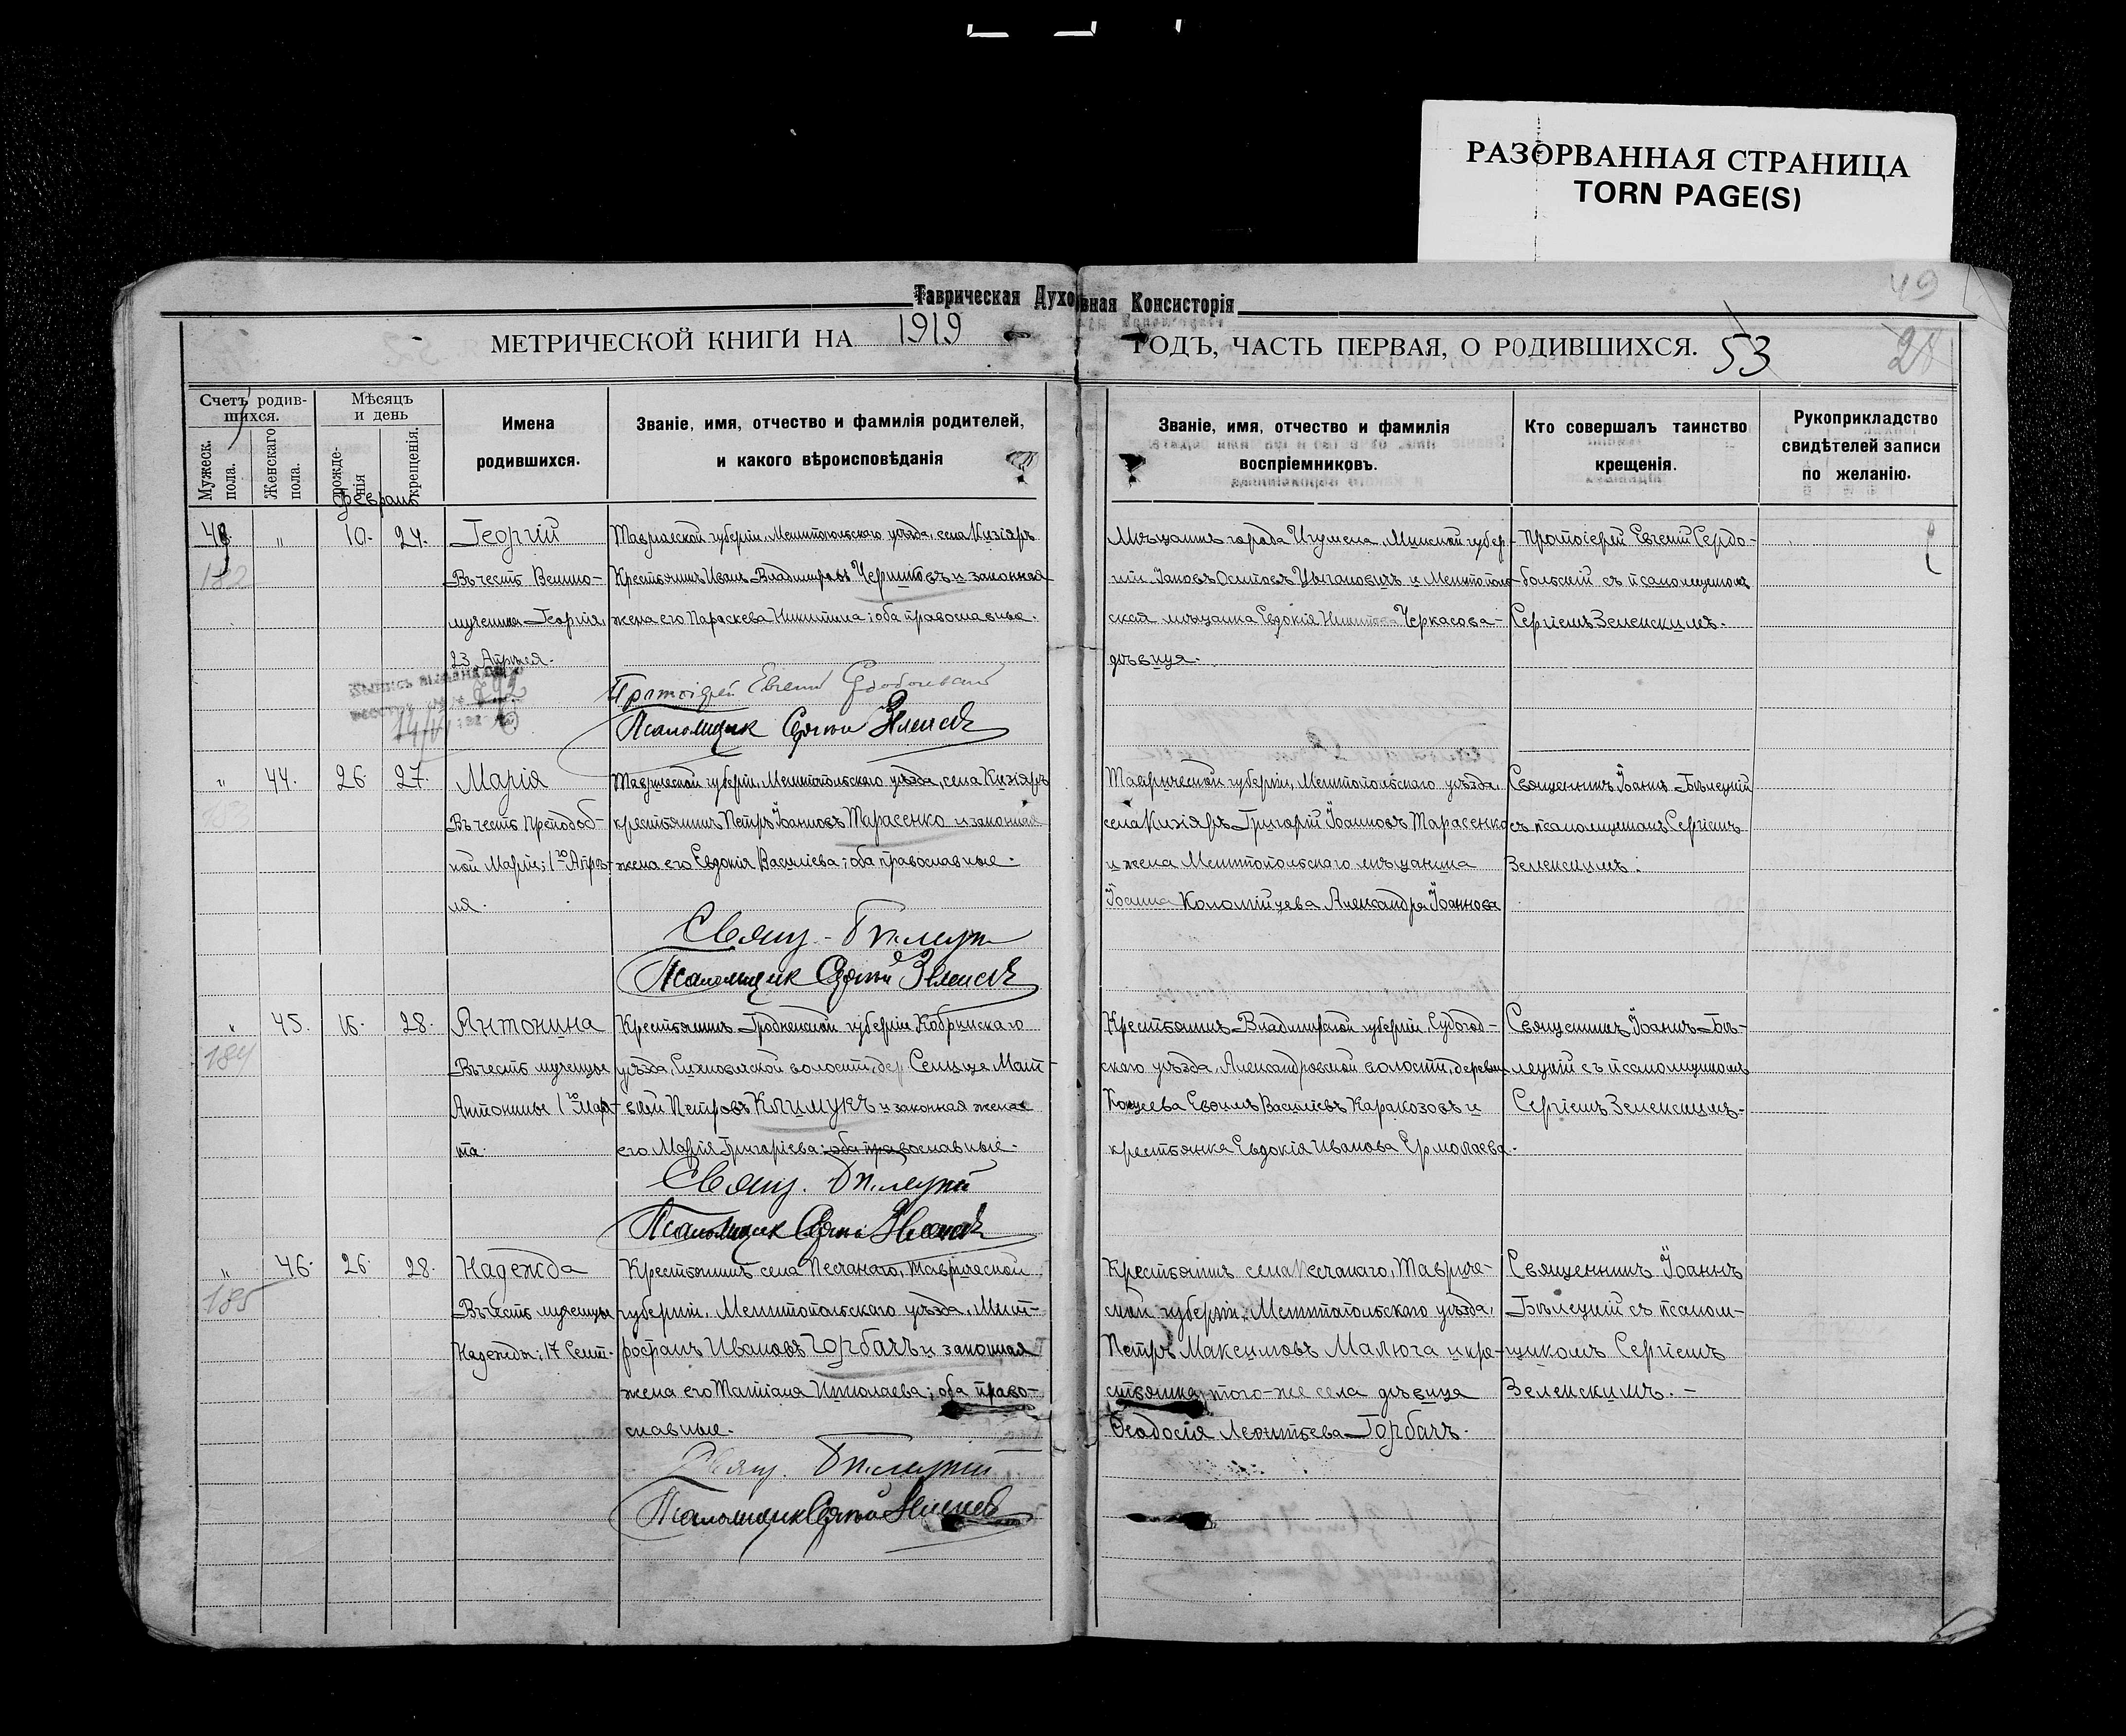 РАЗОРВАННАЯ СТРАНИЦА
TORN PAGE(S)
49
Таврическая Духовная Консисторія
МЕТРИЧЕСКОЙ КНИГИ НА 1919 ГОДЪ, ЧАСТЬ ПЕРВАЯ, О РОДИВШИХСЯ. 53
28
Счетъ родив-
шихся.
Мужеск. пола.
Женскаго пола.
Мѣсяцъ
и день
рожде-
нія
крещенія.
Имена
родившихся.
Званіе, имя, отчество и фамилія родителей,
и какого вѣроисповѣданія
Званіе, имя, отчество и фамилія
воспріемниковъ.
Кто совершалъ таинство
крещенія.
Рукоприкладство
свидѣтелей записи
по желанію.
Февраль
" 10. 24.
Георгій
Въ честь Велико-
мученика Георгія,
23 Апрѣля.
Таврической губерніи, Мелитопольскаго уѣзда, села Кизіяръ
Крестьянинъ Иванъ Владиміровъ и законная
жена его Параскева Никитина; оба православные.
Протоіерей Евгеній Сердобольскій
Псаломщик Сергій Зеленскій
Мѣщанинъ города Игумена, Минской губер-
ніи Іаковъ Осиповъ Цыгановичъ и Мелитополь-
ская мѣщанка Евдокія Никитина Черкасова-
дѣвица.
Протоіерей Евгеній Сердо-
больскій съ псаломщикомъ
Сергіемъ Зеленскимъ.
" 44. 26. 27.
183
Марія
Въ честь Преподоб-
ной Маріи; 1го Апрѣ-
ля.
Таврической губерніи, Мелитопольскаго уѣзда, села Кизіяръ
крестьянинъ Петръ Іоанновъ Тарасенко и законная
жена его Евдокія Василіева; оба православные.
Свящ. Бѣлецкій
Псаломщик Сергій Зеленскій
Таврической губерніи, Мелитопольскаго уѣзда,
села Кизіяръ Григорій Іоанновъ Тарасенко
и жена Мелитопольскаго мѣщанина
Іоанна Коломійцева Александра Іоаннова
Священникъ Іоаннъ Бѣлецкій
съ псаломщикомъ Сергіемъ
Зеленскимъ.
" 45. 16. 28.
184
Антонина
Въ честь мученицы
Антонины 1го Мар-
та.
Крестьянинъ Гродненской губерніи Кобринскаго
уѣзда, волости, дер. Селище Мат-
вѣй Петровъ Климукъ и законная жена
его Марія Григоріева; оба православные.
Свящ. Бѣлецкій
Псаломщик Сергій Зеленскій
Крестьянинъ Владимірской губерніи, Судогод-
скаго уѣзда, Александровской волости, деревни
Евфимъ Василіевъ Каракозовъ и
крестьянка Евдокія Иванова Ермолаева.
Священникъ Іоаннъ Бѣ-
лецкій съ псаломщикомъ
Сергіемъ Зеленскимъ.
" 46. 26. 28.
185
Надежда
Въ честь мученицы
Надежды; 17 Сент.
Крестьянинъ села Песчанаго, Таврической
губерніи, Мелитопольскаго уѣзда, Мит-
рофанъ Ивановъ Горбачъ и законная
жена его Татіана Николаева; оба право-
славные.
Свящ. Бѣлецкій
Псаломщик Сергій Зеленскій
Крестьянинъ села Песчанаго, Тавриче-
ской губерніи, Мелитопольскаго уѣзда,
Петръ Максимовъ Малюга и кре-
стьянка того-же села дѣвица
Ѳеодосія Леонтьева Горбачъ.
Священникъ Іоаннъ
Бѣлецкій съ псалом-
щикомъ Сергіемъ
Зеленскимъ. -